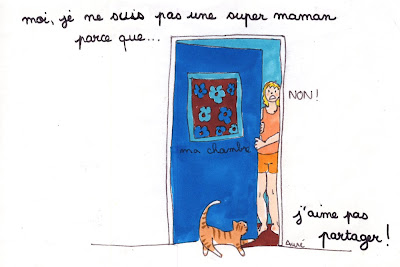 moi, je ne suis pas une super maman
parce que...
NON!
ma chambre
j'aime pas
partager!
Auré